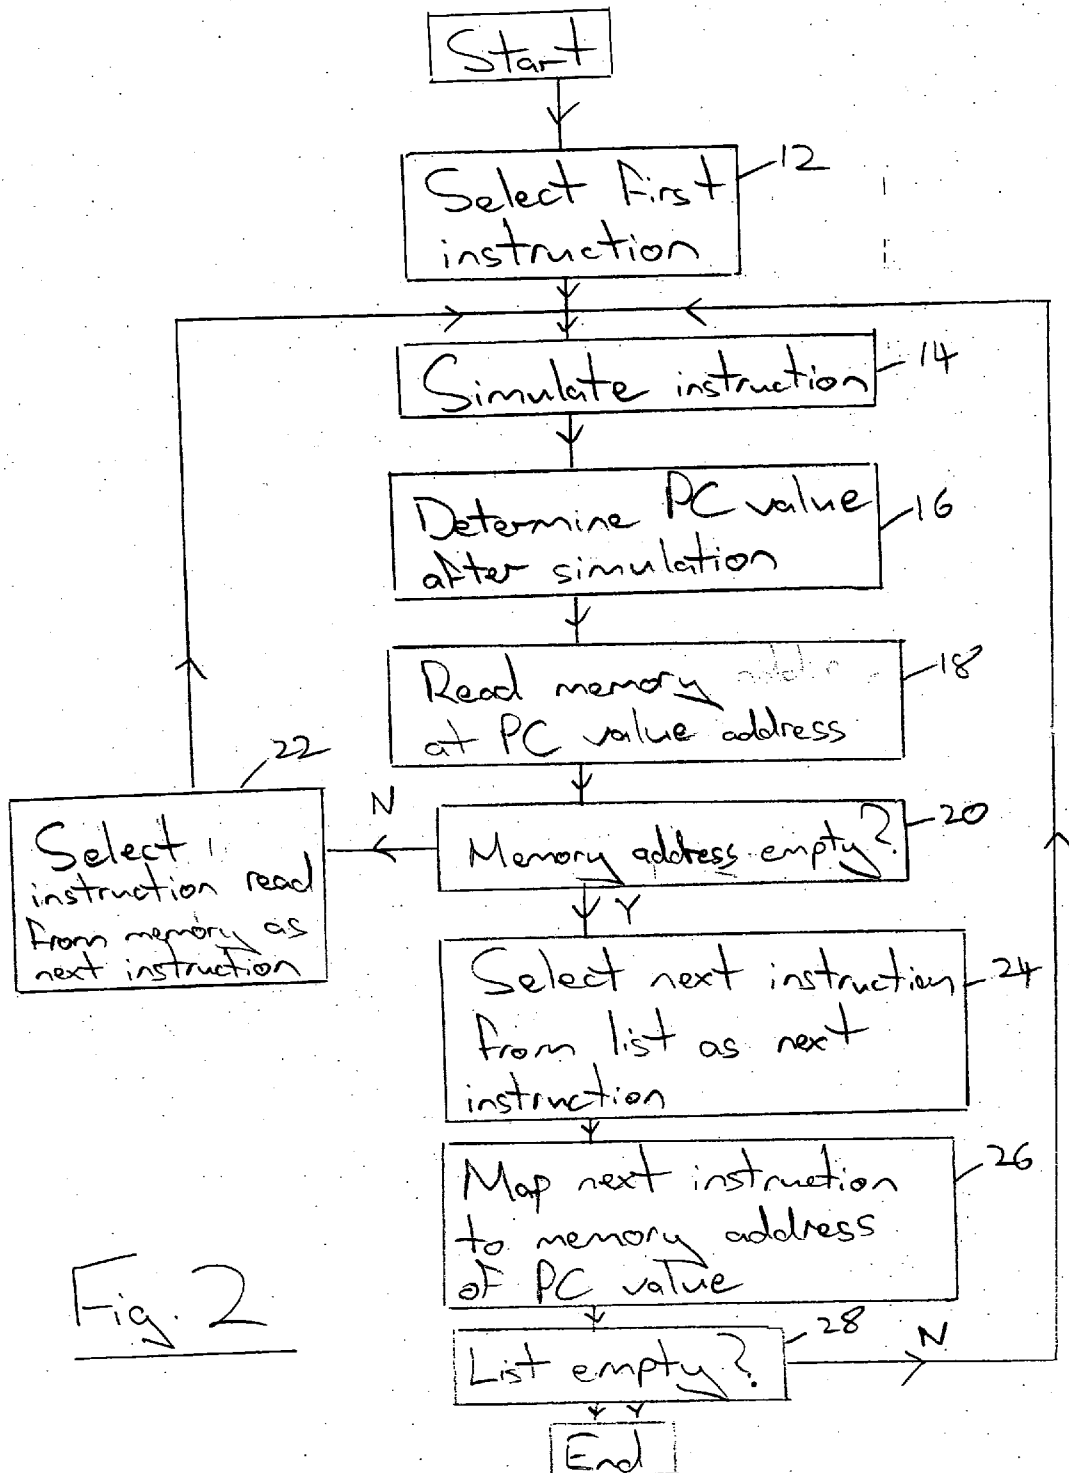 Start
12
Select first
instruction
14
Simulate instruction
16
Determine PC value
after simulation
18
Read memory
at PC value address
22
N
20
Select
instruction read
from memory as
next instruction
Memory address empty?
Y
24
Select next instruction
from list as next
instruction
26
Map next instruction
to memory address
of PC value
28
N
List empty?
Y
End
Fig. 2